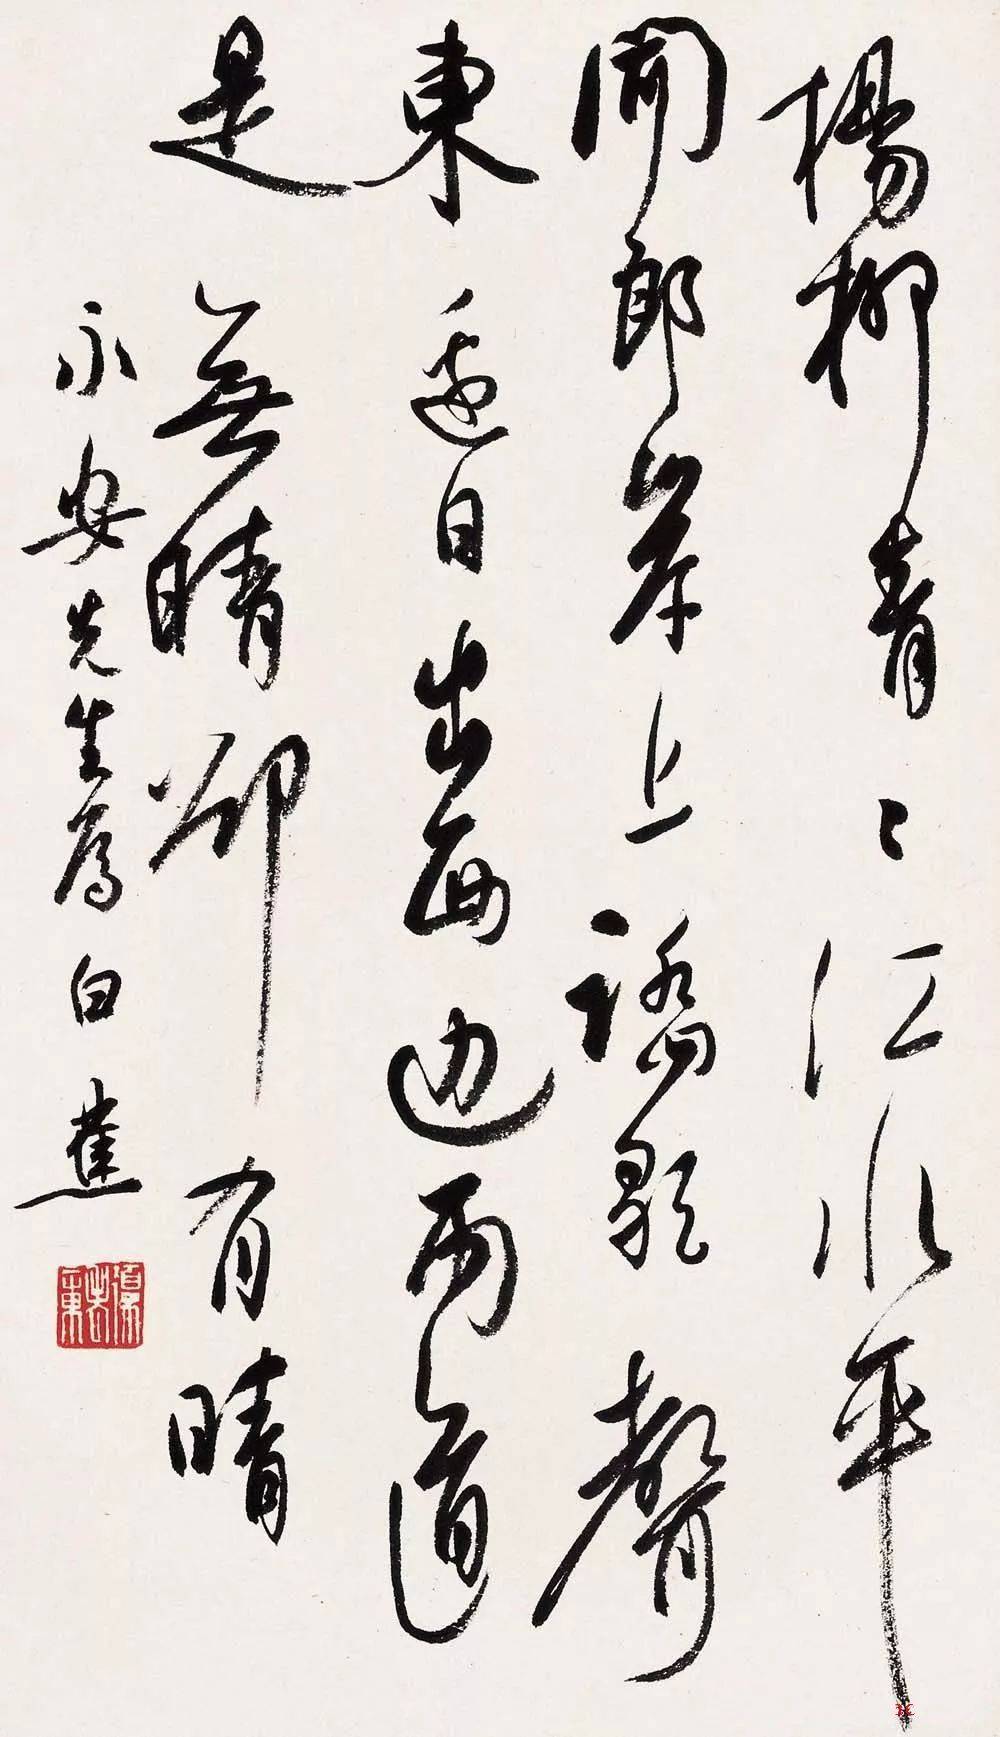 楊柳青〻江水平
聞郎岸上謠歌聲
東邊日出西边雨道
是無晴卻有晴
永安先生属白蕉